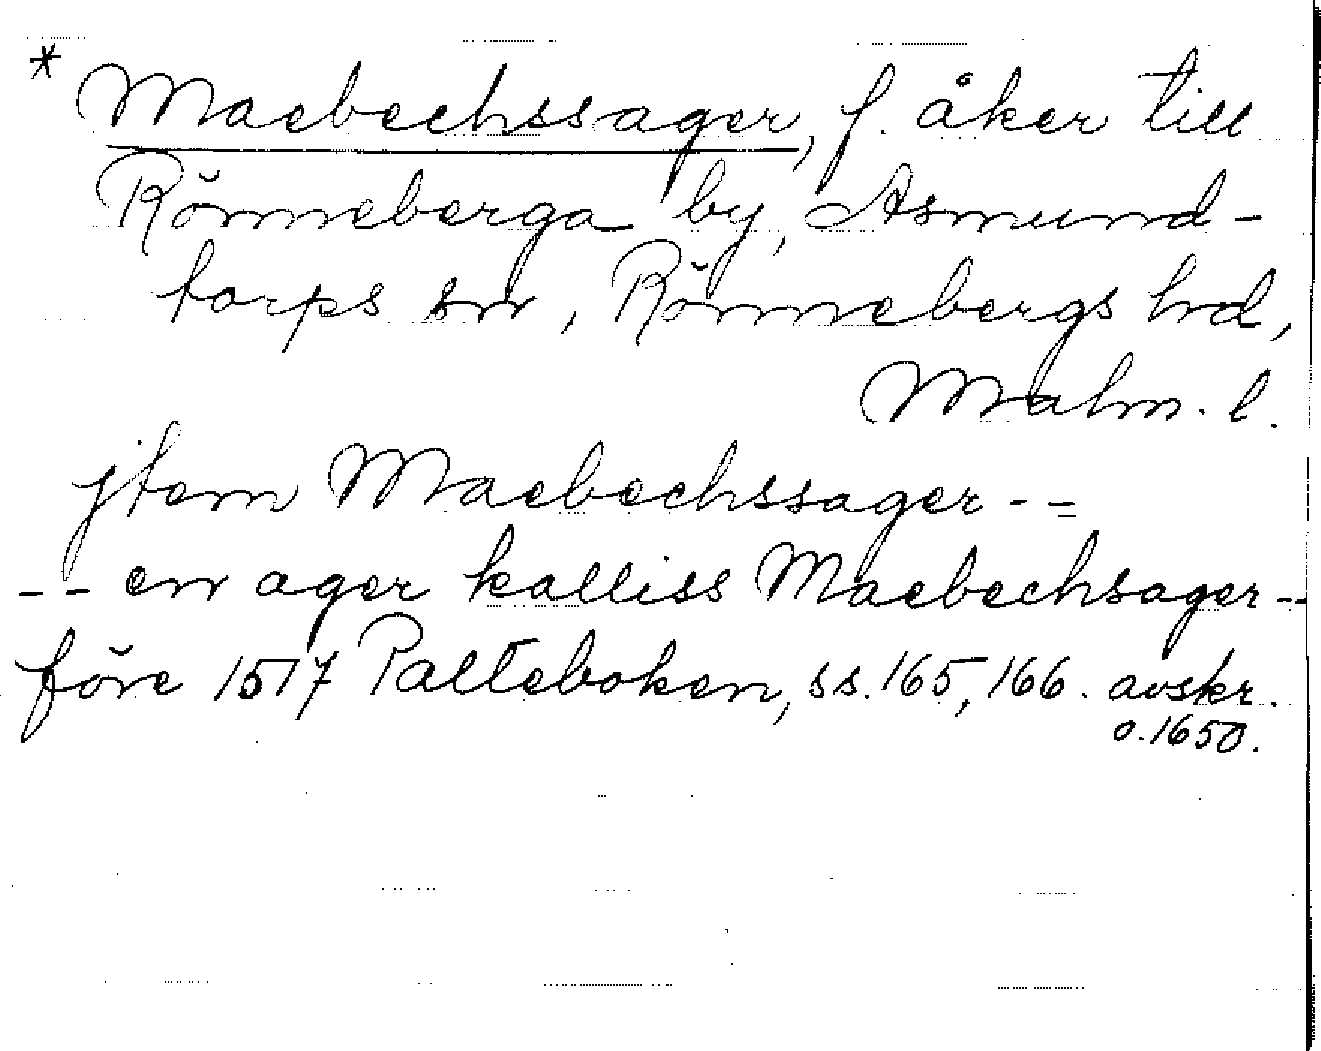 * Maebechssager, f. åker till
Rönneberga by, Asmund-
torps sn, Rönnebergs hd,
Malm. l.
jtem Maebechssager - =
-- en ager kalliss Maebechsager--
före 1517 Palteboken, ss. 165, 166. avskr.
o. 1650.